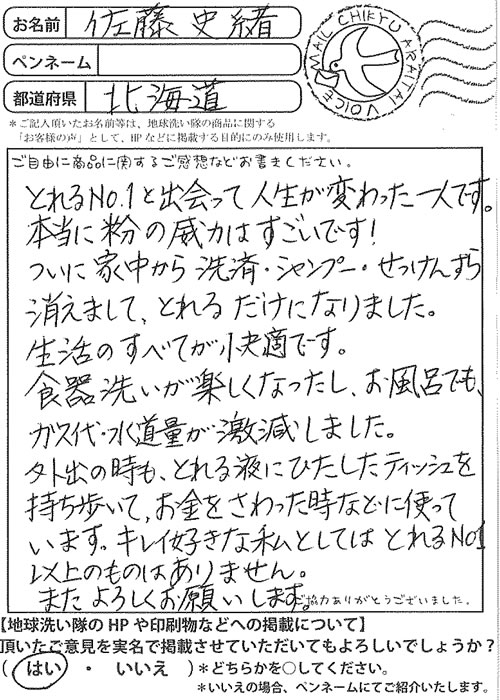 お名前 佐藤史緒
MAIL CHIKYU ARAITAI VOICE
ペンネーム
都道府県 北海道
＊ご記入頂いたお名前等は、地球洗い隊の商品に関する
「お客様の声」として、HPなどに掲載する目的にのみ使用します。
ご自由に商品に関するご感想などお書きください。
とれるNo.1と出会って人生が変わった一人です。
本当に粉の威力はすごいです！
ついに家中から洗済・シャンプー・せっけんすら
消えまして、とれるだけになりました。
生活のすべてが快適です。
食器洗いが楽しくなったし、お風呂でも、
ガス代・水道量が激減しました。
外出の時も、とれる液にひたしたティッシュを
持ち歩いて、お金をさわった時などに使って
います。キレイ好きな私としてはとれるNo1
以上のものはありません。
またよろしくお願いします。
ご協力ありがとうございました。
【地球洗い隊のHPや印刷物などへの掲載について】
頂いたご意見を実名で掲載させていただいてもよろしいでしょうか？
（ はい ・ いいえ ）＊どちらかを○してください。
＊いいえの場合、ペンネームにてご紹介いたします。